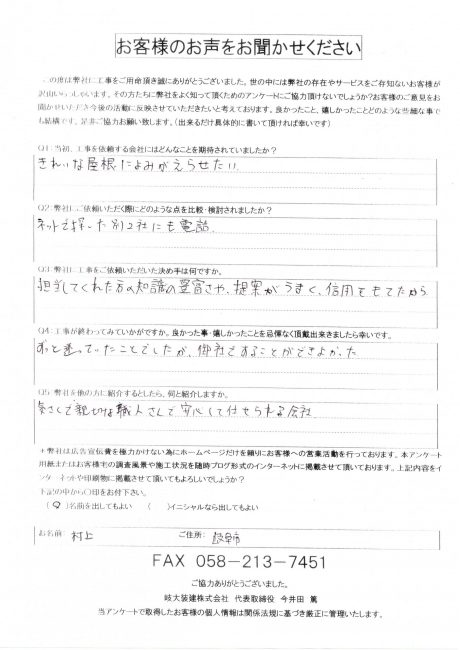 お客様のお声をお聞かせください
この度は弊社に工事をご用命頂き誠にありがとうございました。世の中には弊社の存在やサービスをご存知ないお客様が
沢山いらっしゃいます。その方たちに弊社をよく知って頂くためのアンケートにご協力頂けないでしょうか?お客様のご意見をお
聞かせいただき今後の活動に反映させていただきたいと考えております。良かったこと、嬉しかったことどのような些細な事で
も結構です。是非ご協力お願い致します。(出来るだけ具体的に書いて頂ければ幸いです)
Q1:当初、工事を依頼する会社にはどんなことを期待されていましたか?
きれいな屋根によみがえらせたい
Q2:弊社にご依頼いただく際にどのような点を比較・検討されましたか?
ネットで探した別2社にも電話
Q3:弊社に工事をご依頼いただいた決め手は何ですか。
担当してくれた方の知識の豊富さや、提案がうまく、信用をもてたから
Q4:工事が終わってみていかがですか。良かった事・嬉しかったことを忌憚なく頂戴出来きましたら幸いです。
ずっと迷っていたことでしたが、御社ですることができよかった
Q5:弊社を他の方に紹介するとしたら、何と紹介しますか。
気さくで親切な職人さんで安心して任せられる会社
＊弊社は広告宣伝費を極力かけない為にホームページだけを頼りにお客様への営業活動を行っております。本アンケート
用紙またはお客様宅の調査風景や施工状況を随時ブログ形式のインターネットに掲載させて頂いております。上記内容をイ
ンターネットや印刷物に掲載させて頂いてもよろしいでしょうか?
下記の中から〇印をお付下さい。
(○)名前を出してもよい ( )イニシャルなら出してもよい
お名前: 村上 ご住所: 岐阜市
FAX 058-213-7451
ご協力ありがとうございました。
岐大装建株式会社 代表取締役 今井田 篤
当アンケートで取得したお客様の個人情報は関係法規に基づき厳正に管理いたします。